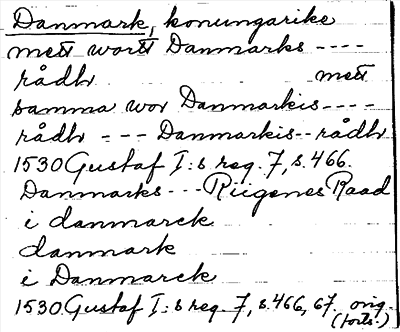 Danmark, konungarike
mett wortt Danmarks ----
rådh mett
samma wor Danmarkis----
rådh --- Danmarkis-- rådh
1530 Gustaf I:s reg. 7, s. 466.
Danmarks --- Riigenes Raad
i danmarck
danmark
i Danmarck
1530 Gustaf I:s reg. 7, s. 466, 67. orig.
(forts.)